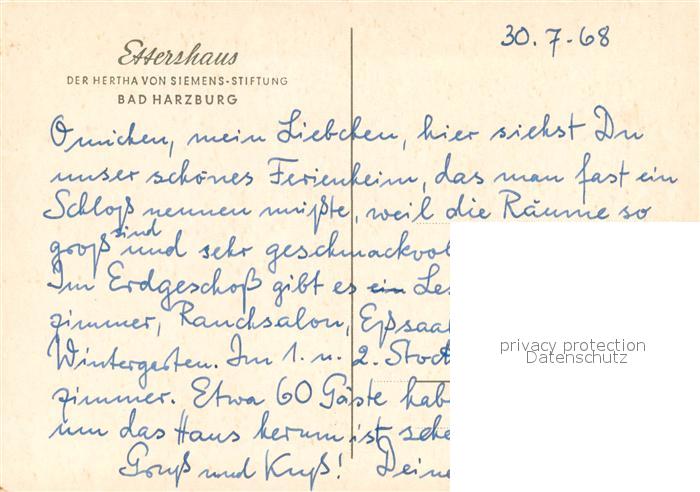 Ettershaus
DER HERTHA VON SIEMENS-STIFTUNG
BAD HARZBURG
30.7-68
Omichen, mein Liebchen, hier siehst Du
unser schönes Ferienheim, das man fast ein
Schloß nennen müßte, weil die Räume so
groß sind und sehr geschmackvol
Im Erdgeschoß gibt es ein Les
zimmer, Rauchsalon, Eßsaal
Wintergarten. Im 1. u. 2. Stock
zimmer. Etwa 60 Gäste hab
um das Haus herum ist
Gruß und Kuß! Deine
privacy protection
Datenschutz